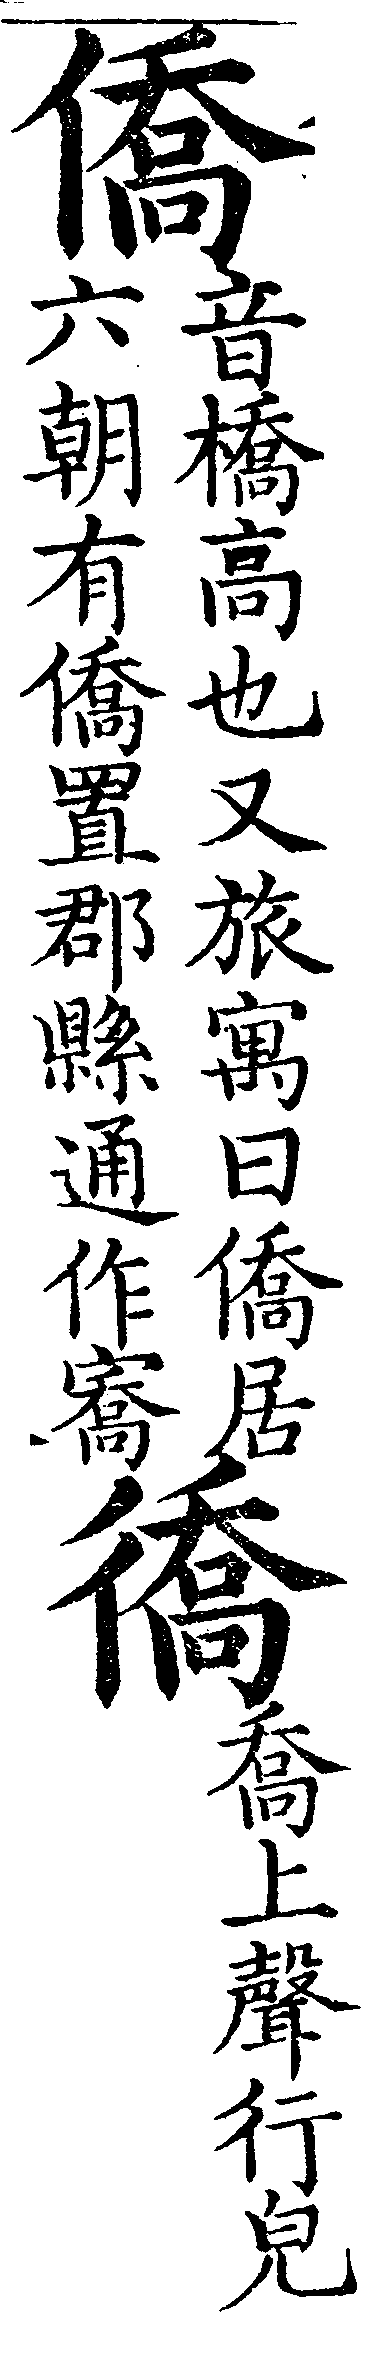 僑
音橋高也又旅寓曰僑居
六朝有僑置郡縣通作㝯
𢕪
喬上聲行皃